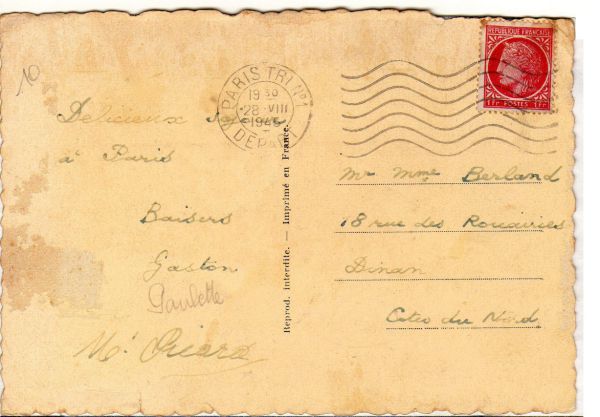 10
Délicieux séjour
à Paris
Baisers
Gaston
Paulette
PARIS TRI N°1
19 30
28 VIII
1946
DEPART
Reprod. interdite. — Imprimé en France.
REPUBLIQUE FRANÇAISE
1Fr POSTES 1Fr
Mr Mme Berland
18 rue des Rouairies
Dinan
Cotes du Nord